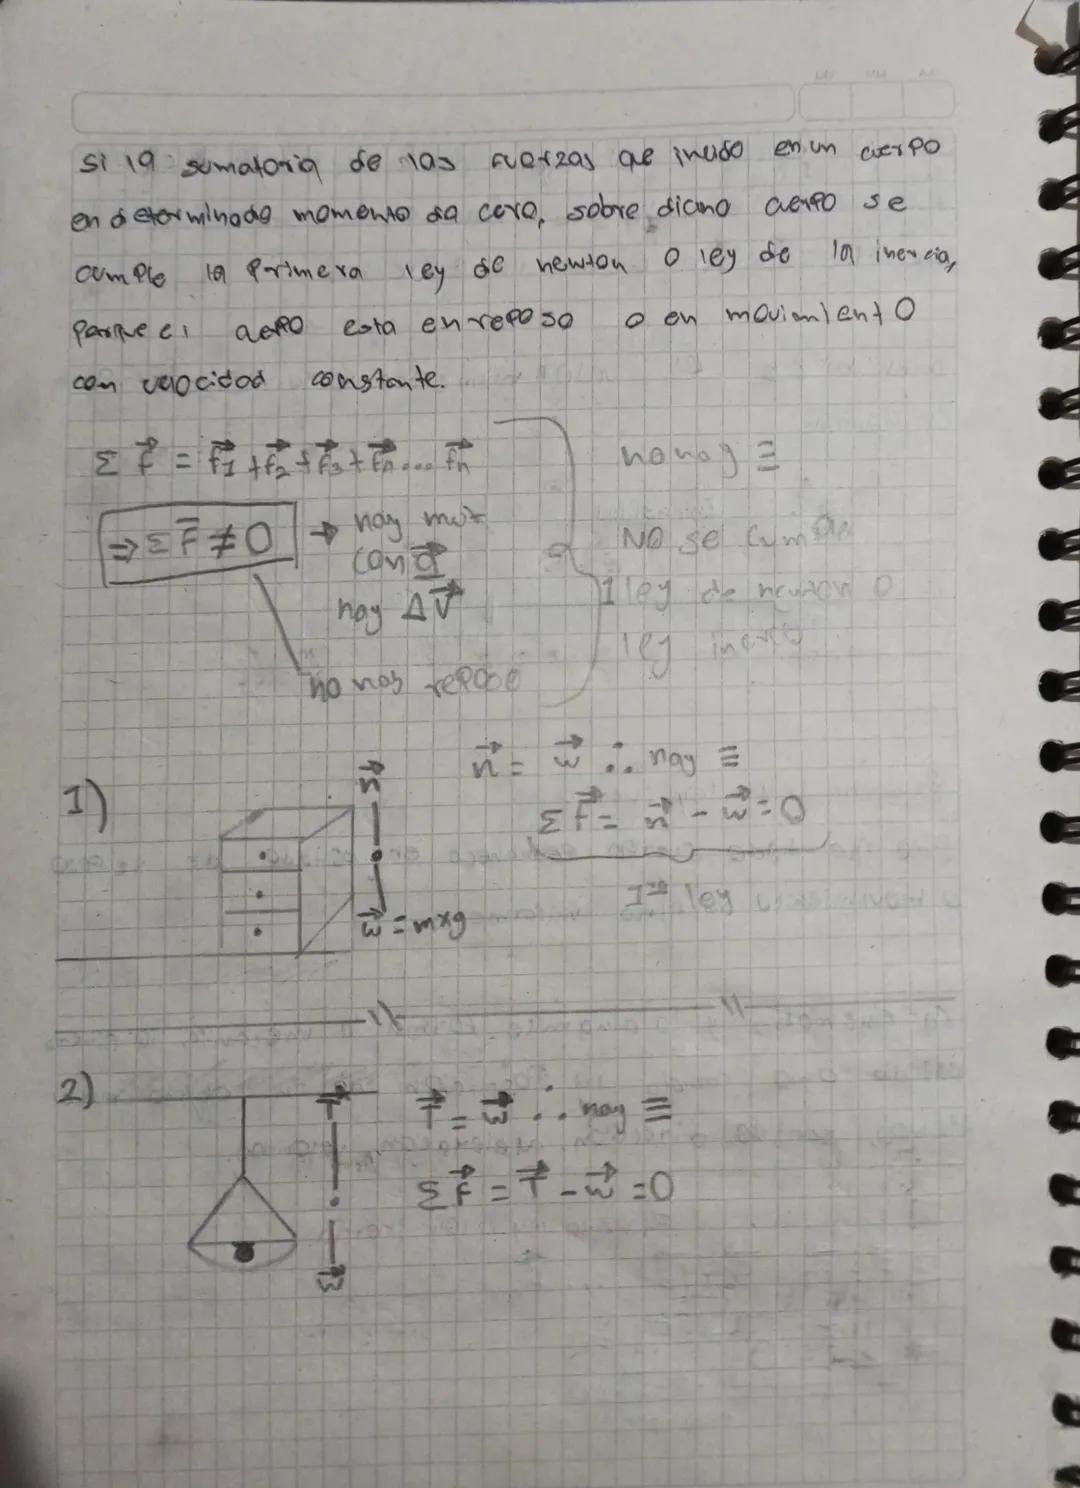 si la sumatoria de las fuerzas que incide en un cuerpo
en determinado momento da cero, sobre dicho cuerpo se
cumple la primera ley de newton o ley de la inercia,
porque el cuerpo esta en reposo o en movimiento
con velocidad constante.
Σ F⃗ = f⃗1 + f⃗2 + f⃗3 + f⃗n ... f⃗n
⇒ Σ F⃗ ≠ 0 → hay
con a⃗
hay Δ V⃗
no hay reposo
no hay Ξ
NO se cumple
1 ley de newton o
ley
1)
n⃗
w⃗ = mxg
n⃗ = w⃗ ∴ hay Ξ
Σ F⃗ = n⃗ - w⃗ = 0
1ra ley
2)
T⃗
w⃗
T⃗ = w⃗ ∴ hay Ξ
Σ F⃗ = T⃗ - w⃗ = 0